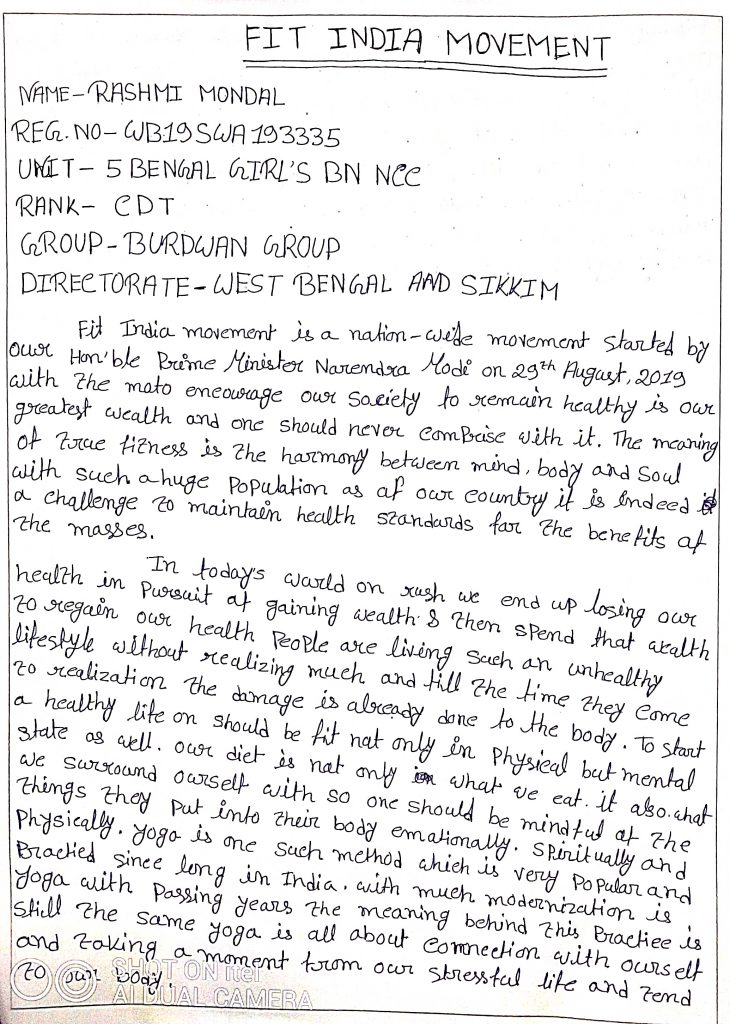 FIT INDIA MOVEMENT
NAME-RASHMI MONDAL
REG.NO-WB19SWA193335
UNIT- 5 BENGAL GIRL'S BN NCC
RANK- CDT
GROUP-BURDWAN GROUP
DIRECTORATE-WEST BENGAL AND SIKKIM
Fit India movement is a nation-wide movement started by
our Hon'ble Prime Minister Narendra Modi on 29th August, 2019
with the moto encourage our society to remain healthy is our
greatest wealth and one should never comprise with it. The meaning
of true fitness is the harmony between mind, body and soul
with such a huge population as of our country it is indeed
a challenge to maintain health standards for the benefits of
the masses.
In today's world on rush we end up losing our
health in pursuit of gaining wealth & then spend that wealth
to regain our health People are living such an unhealthy
lifestyle without realizing much and till the time they come
to realization the damage is already done to the body. To start
a healthy life on should be fit not only in physical but mental
state as well. our diet is not only in what we eat. it also what
we surround ourself with so one should be mindful of the
things they put into their body emationally. spiritually and
physically. yoga is one such method which is very popular and
Practied since long in India. with much modernization is
yoga with passing years the meaning behind this Practice is
still the same yoga is all about connection with ourself
and taking a moment from our stressful life and tend
to our body.
SHOT ON itel
AI DUAL CAMERA